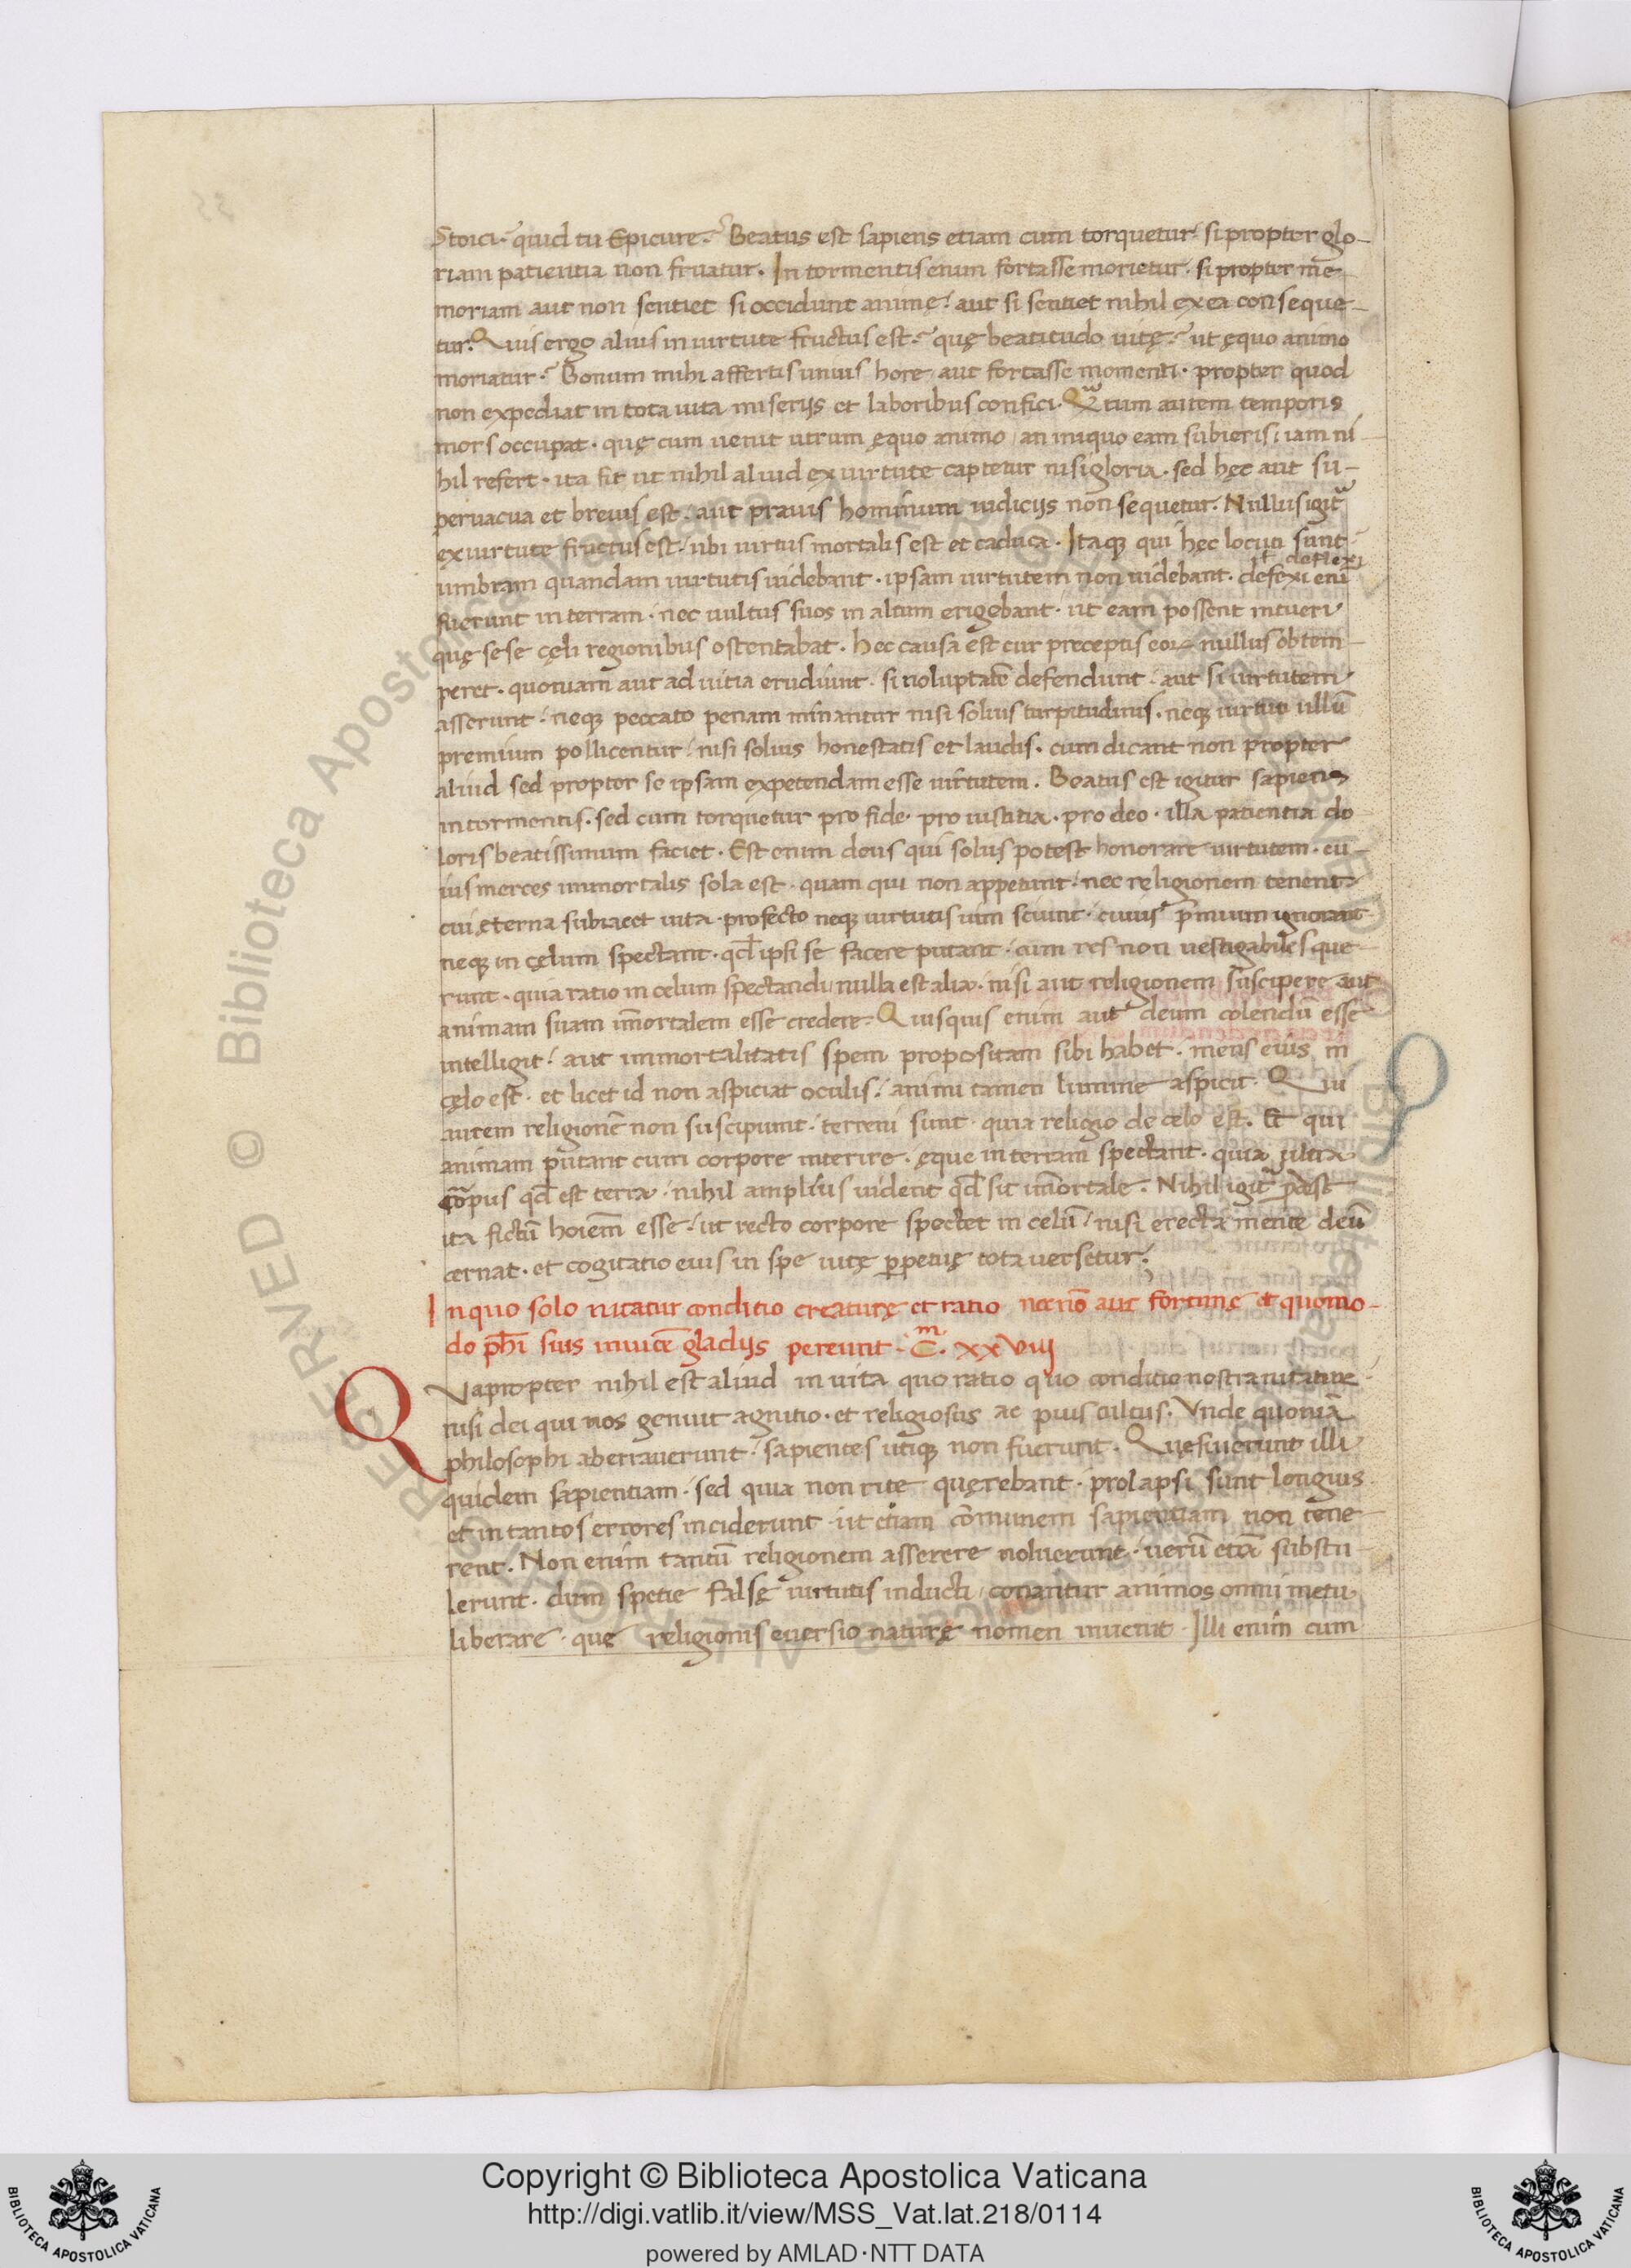 Stoici? quid tu Epicure? Beatus est sapiens etiam cum torquetur. si propter glo-
riam patientia non fruatur. In tormentis enim fortasse morietur. si propter me-
moriam aut non sentiet si occidunt animę: aut si sentiet nihil ex ea conseque-
tur. Quis ergo alius in uirtute fructus est? quę beatitudo uitę? ut ęquo animo
moriatur? Bonum mihi affertis unius hore aut fortasse momenti. propter quod
non expediat in tota uita miserijs et laboribus confici. Qᵃtum autem temporis
mors occupat. quę cum uenit utrum ęquo animo an iniquo eam subieris: iam ni-
hil refert. ita fit ut nihil aliud ex uirtute captetur nisi gloria. sed hęc aut su-
peruacua et breuis est. aut prauis hominum iudicijs non sequetur. Nullus igit᷑
ex uirtute fructus est: ubi uirtus mortalis est et caduca. Itaqꝫ qui hęc locuti sunt
ł deflexi
umbram quandam uirtutis uidebant. ipsam uirtutem non uidebant. defexi eni̅
fuerunt in terram. nec uultus suos in altum erigebant. ut eam possent intueri
quę sese cęli regionibus ostentabat. Hec causa est cur preceptis eoꝝ nullus obtem-
peret. quoniam aut ad uitia erudiunt. si uoluptate̅ defendunt: aut si uirtutem
asserunt: neqꝫ peccato penam minantur nisi solius turpitudinis. neqꝫ uirtuti ullu̅
premium pollicentur: nisi solius honestatis et laudis. cum dicant non propter
aliud sed propter se ipsam expetendam esse uirtutem. Beatus est igitur sapiens
in tormentis. sed cum torquetur pro fide. pro iustitia. pro deo. illa patientia do
loris beatissimum faciet. Est enim deus qui solus potest honorare uirtutem. cu-
ius merces immortalis sola est. quam qui non appetunt: nec religionem tenent
cui ęterna subiacet uita. profecto neqꝫ uirtutis uim sciunt. cuius p̅mium ignorant
neqꝫ in cęlum spectant. qđ ipsi se facere putant. cum res non uestigabiles que-
runt. quia ratio in celum spectandi nulla est alia. nisi aut religionem suscipere aut
animam suam im̅ortalem esse credere. Quisquis enim aut deum colendu̅ esse
intelligit: aut immortalitatis spem propositam sibi habet. mens eius in
cęlo est. et licet id non aspiciat oculis: animi tamen lumine aspicit. Qui
autem religione̅ non suscipiunt: terreni sunt. quia religio de celo est. Et qui
animam putant cum corpore interire. ęque in terram spectant. quia ultra
corpus qđ est terra. nihil amplius uident qđ sit im̅ortale. Nihil igit᷑ prodest
ita fictu̅ hoiem̅ esse: ut recto corpore spectet in celu̅: nisi erecta mente deu̅
cernat. et cogitatio eius in spe uitę ꝑpetuę tota uersetur.
In quo solo nitatur conditio creaturę et ratio necno̅ aut fortunę et quomo-
do phi̅ suis inuice̅ gladijs pereunt. C.m XXVIII
Quapropter nihil est aliud in uita quo ratio quo conditio nostra nitatur
nisi dei qui nos genuit agnitio. et religiosus ac pius cultus. Vnde quonia̅
philosophi aberrauerunt: sapientes utiqꝫ non fuerunt. Quęsiuerunt illi
quidem sapientiam. sed quia non rite quęrebant. prolapsi sunt longius
et in tantos errores inciderunt. ut etiam co̅munem sapientiam non tene
rent. Non enim tantu̅ religionem asserere noluerunt. ueru̅ etia̅ sustu-
lerunt. dum spetie falsę uirtutis inducti conantur animos omni metu
liberare. quę religionis euersio naturę nomen inuenit. Illi enim cum
© Biblioteca Apostolica Vaticana
ALL RIGHTS RESERVED
Copyright © Biblioteca Apostolica Vaticana
http://digi.vatlib.it/view/MSS_Vat.lat.218/0114
powered by AMLAD·NTT DATA
BIBLIOTECA APOSTOLICA VATICANA
BIBLIOTECA APOSTOLICA VATICANA